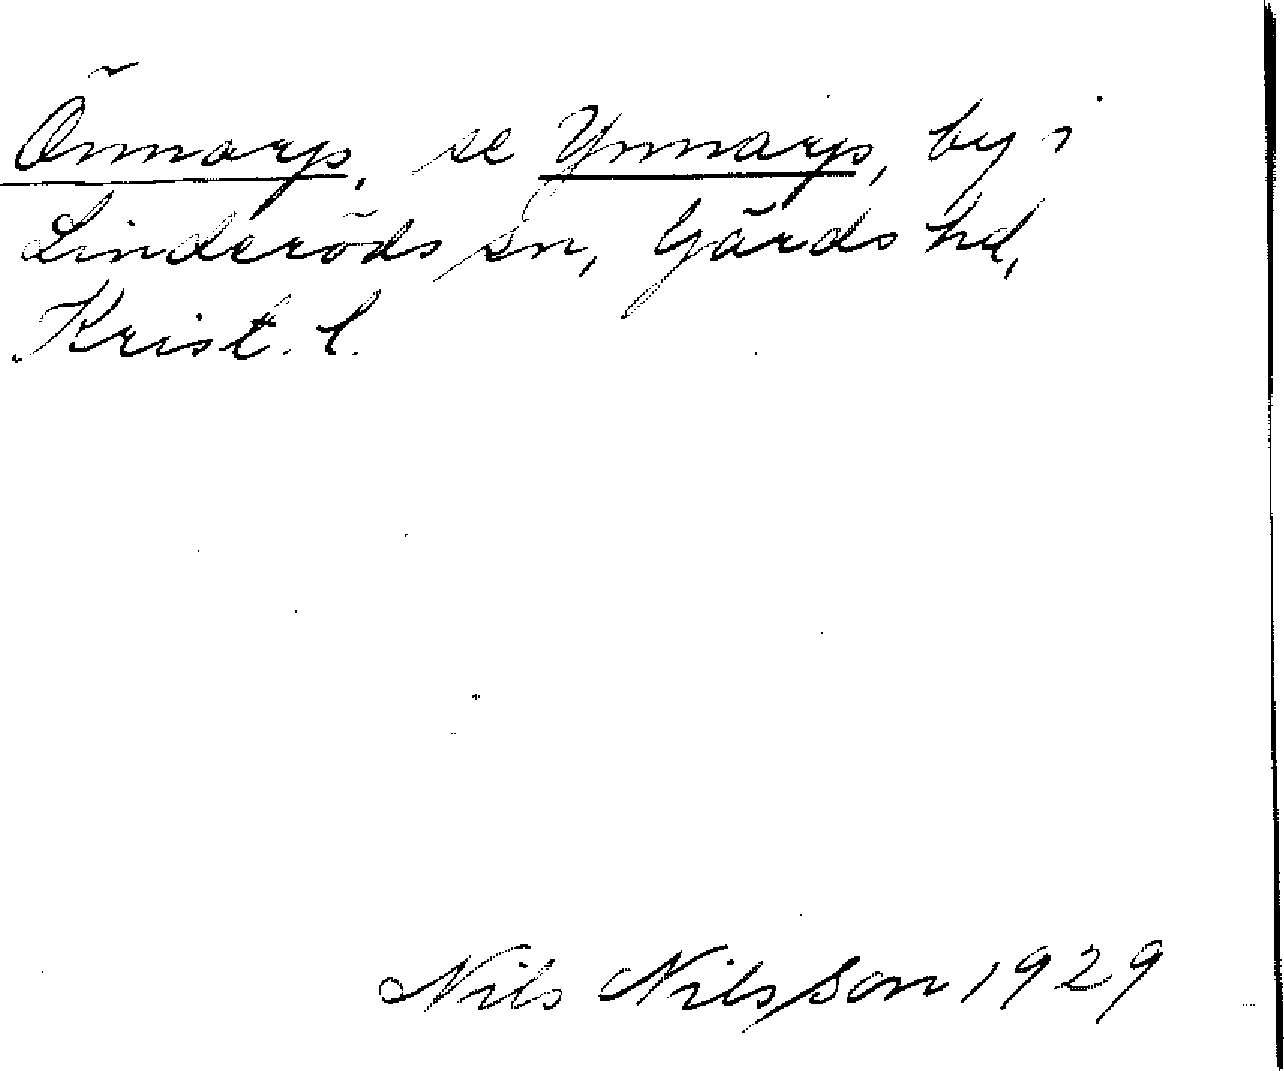 Önnarp, se Ynnarp, by i
Linderöds sn, Gärds hd,
Krist. l.
Nils Nilsson 1929